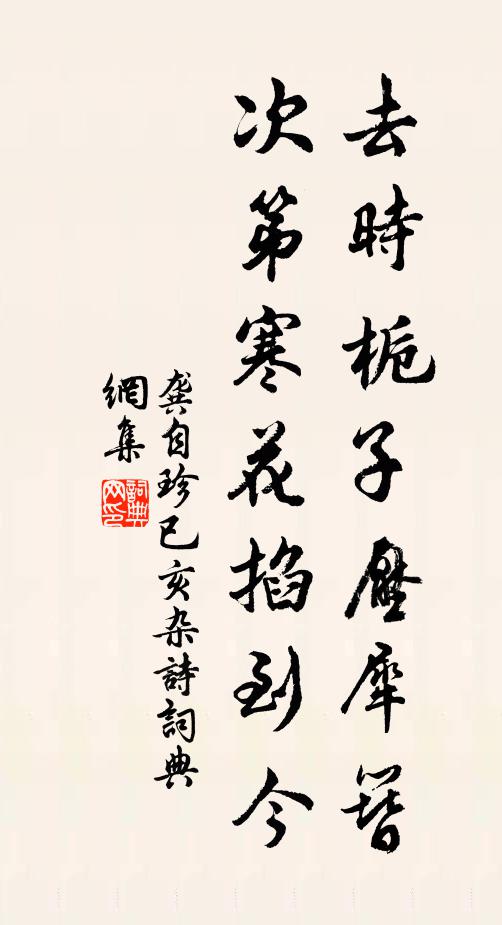 去時栀子壓犀簪
次第寒花掐到今
龔自珍己亥杂詩詞典
網集
詞典
网印